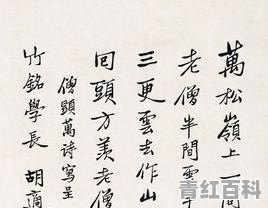 萬松嶺上一間
老僧半間雲
三更雲去作山
囘頭方羨老僧
僧顯萬詩寫呈
竹銘學長 胡適
青红百科